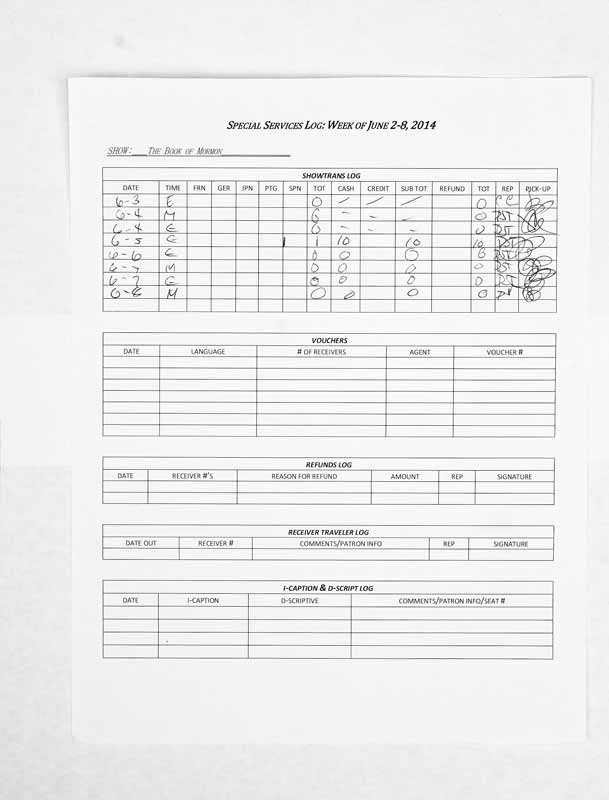 SPECIAL SERVICES LOG: WEEK OF JUNE 2-8, 2014
SHOW: THE BOOK OF MORMON
SHOWTRANS LOG
DATE TIME FRN GER JPN PTG SPN TOT CASH CREDIT SUB TOT REFUND TOT REP PICK-UP
6-3 E 0 - - - 0 CC
6-4 M 0 - - - 0 DST
6-4 E 0 - - - 0 DST
6-5 E 1 1 10 10 10 DST
6-6 E 0 0 0 0 DST
6-7 M 0 0 0 0 DST
6-7 E 0 0 0 0 DST
6-8 M 0 0 0 0
VOUCHERS
DATE LANGUAGE # OF RECEIVERS AGENT VOUCHER #
REFUNDS LOG
DATE RECEIVER #'S REASON FOR REFUND AMOUNT REP SIGNATURE
RECEIVER TRAVELER LOG
DATE OUT RECEIVER # COMMENTS/PATRON INFO REP SIGNATURE
I-CAPTION & D-SCRIPT LOG
DATE I-CAPTION D-SCRIPTIVE COMMENTS/PATRON INFO/SEAT #